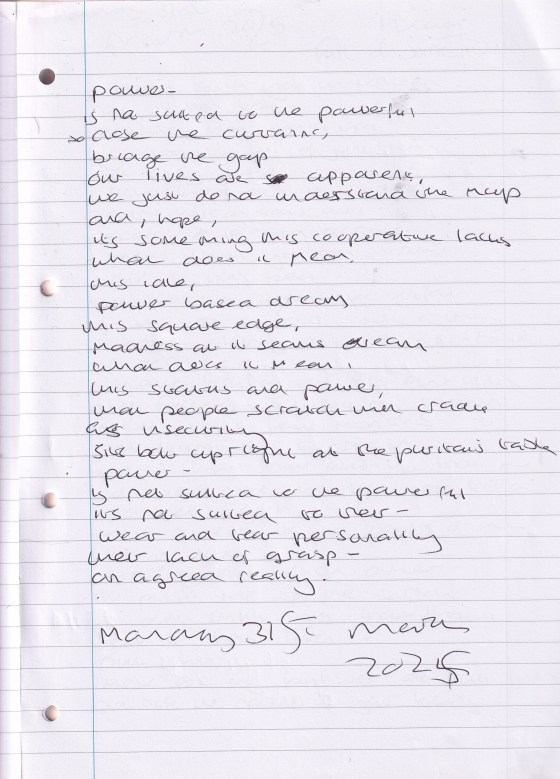 power-
is not suited to the powerful
so close the curtains,
bridge the gap
our lives are apparent,
we just do not understand the map
and, hope,
its something this cooperative lacks
what does it mean.
this idle,
power based dream
this square edge,
madness as it seems dream
what does it mean,
this status and power,
that people scratch their
as insecurity
sits bolt upright at the puritan's table
power-
is not suited to the powerful
its not suited to their-
wear and tear personality
their lack of grasp-
an agreed reality.
Monday 31st March
2025